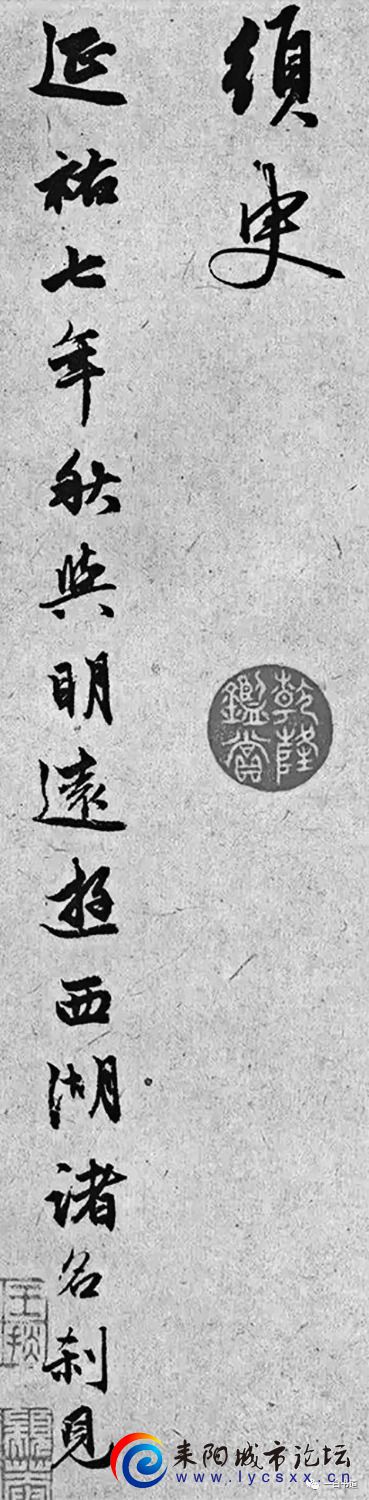 須臾
乾隆
鑑賞
延祐七年秋與明遠遊西湖諸名刹見
王掞
耒阳城市论坛
www.lycsxx.cn